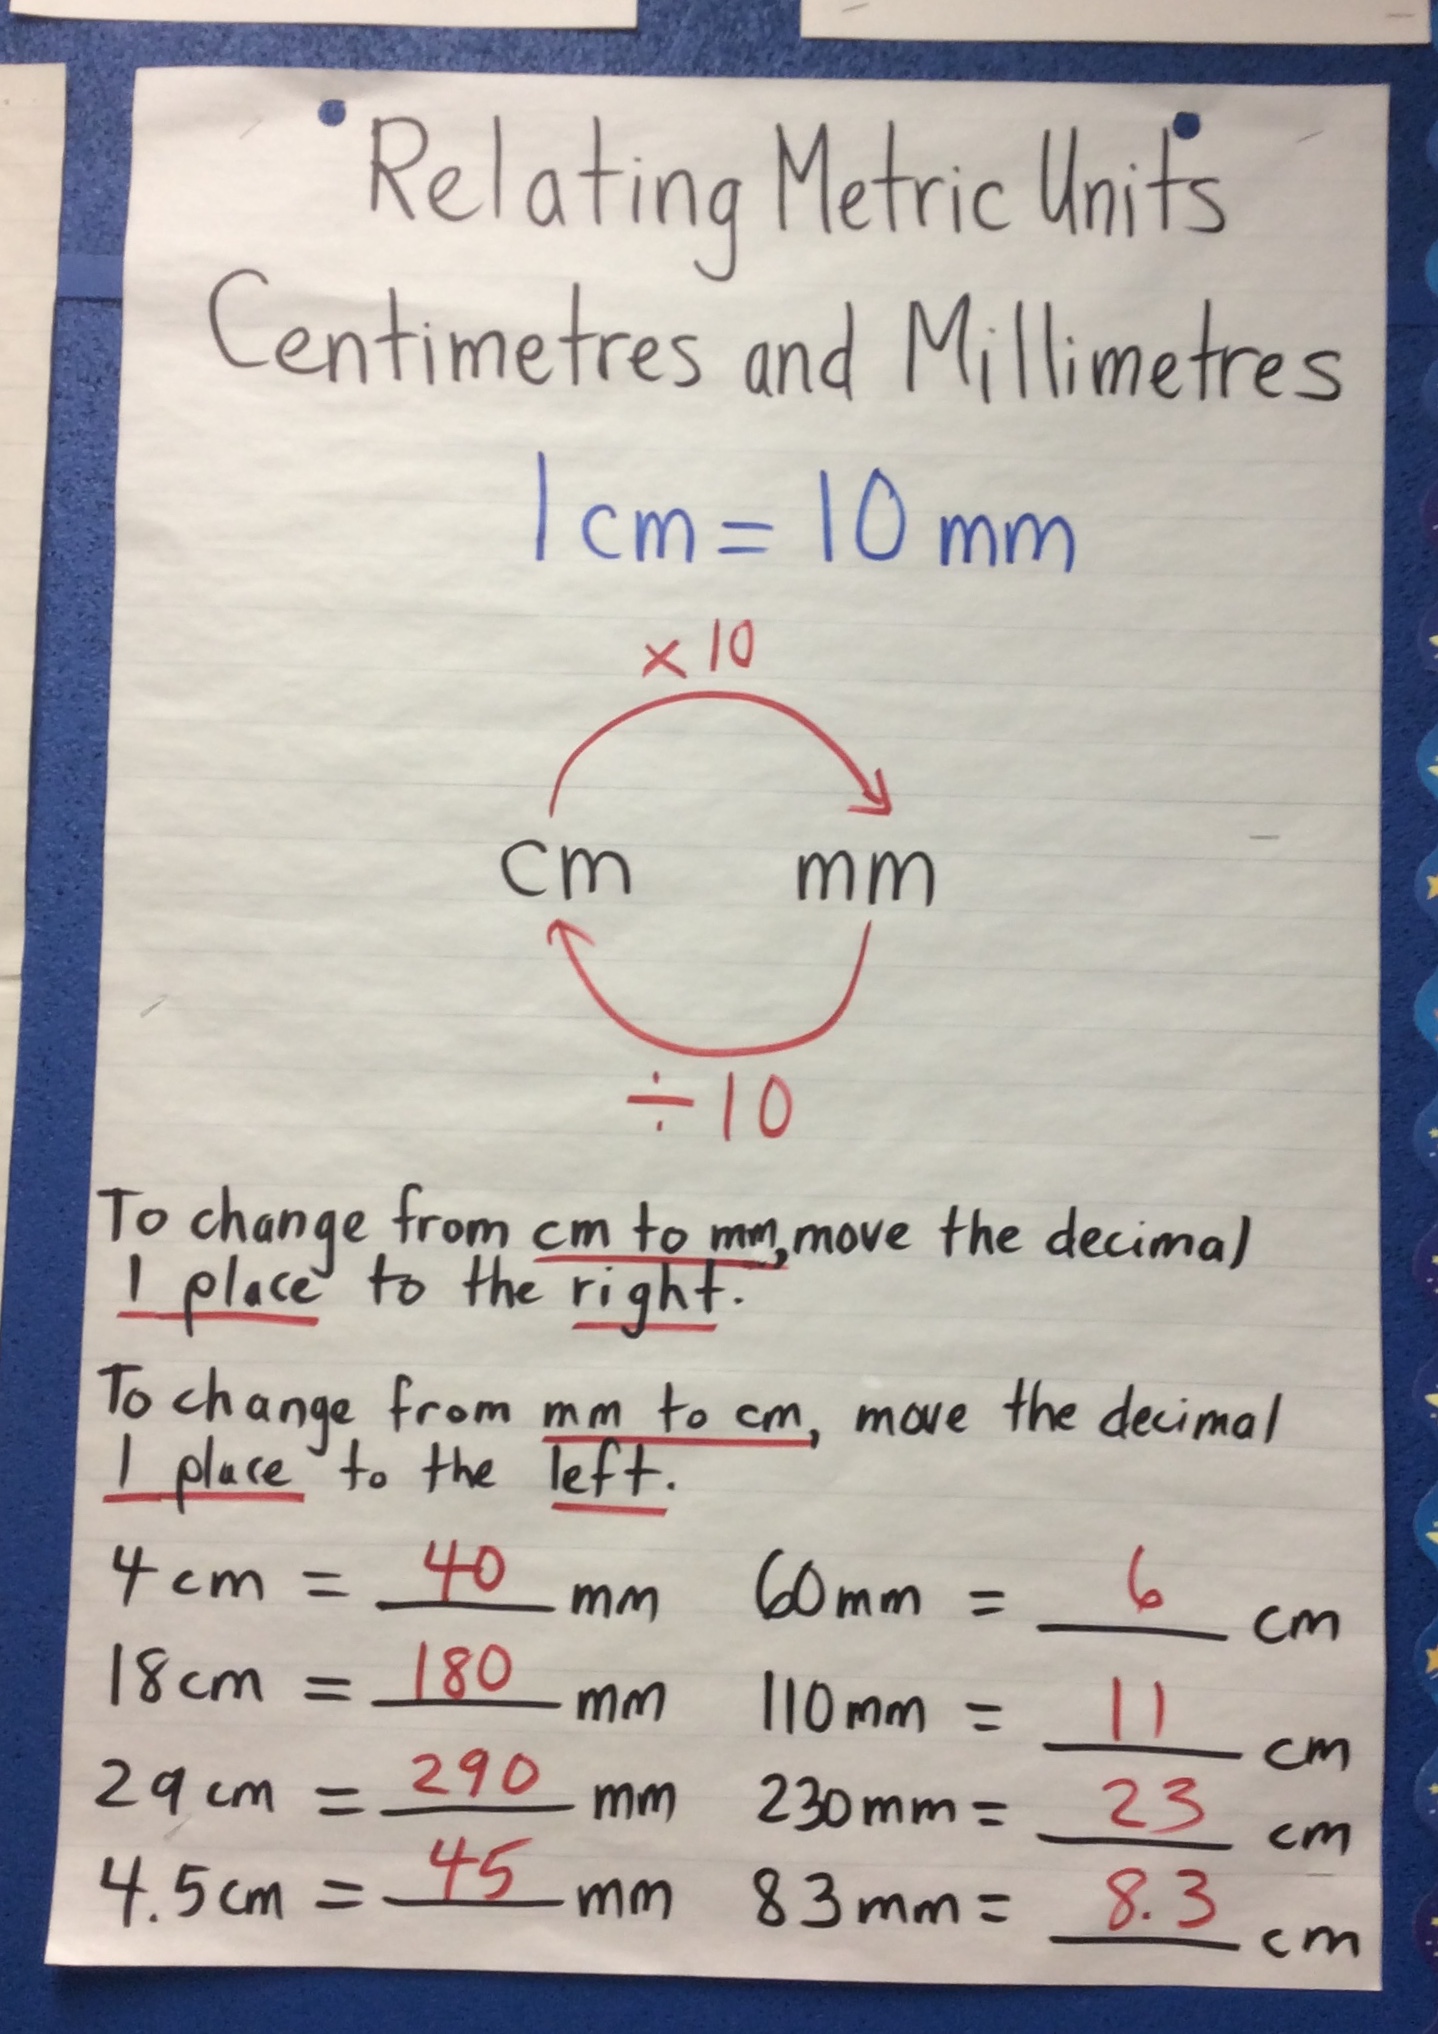 Relating Metric Units
Centimetres and Millimetres
1 cm = 10 mm
× 10
cm mm
÷ 10
To change from cm to mm, move the decimal
1 place to the right.
To change from mm to cm, move the decimal
1 place to the left.
4 cm = 40 mm 60 mm = 6 cm
18 cm = 180 mm 110 mm = 11 cm
29 cm = 290 mm 230 mm = 23 cm
4.5 cm = 45 mm 83 mm = 8.3 cm